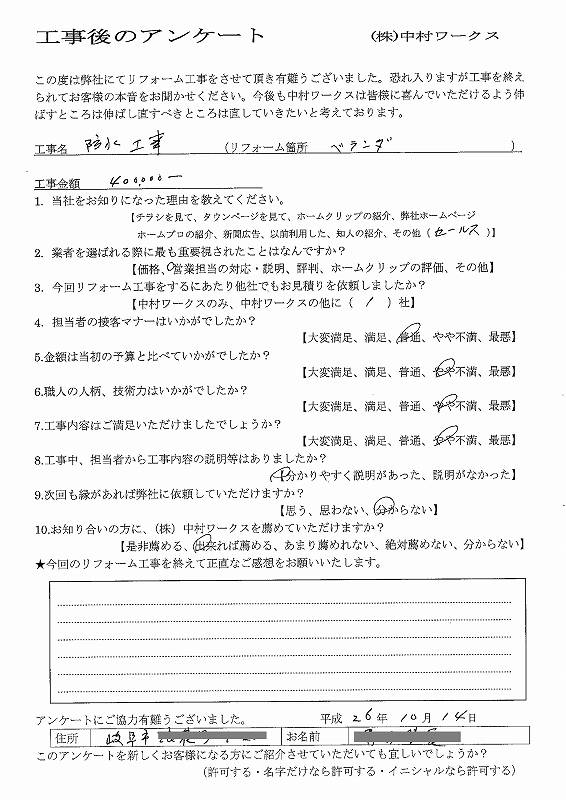 工事後のアンケート　（株）中村ワークス
この度は弊社にてリフォーム工事をさせて頂き有難うございました。恐れ入りますが工事を終え
られてお客様の本音をお聞かせください。今後も中村ワークスは皆様に喜んでいただけるよう伸
ばすところは伸ばし直すべきところは直していきたいと考えております。
工事名　防水工事　（リフォーム箇所　ベランダ　）
工事金額　400,000ー
1. 当社をお知りになった理由を教えてください。
【チラシを見て、タウンページを見て、ホームクリップの紹介、弊社ホームページ
ホームプロの紹介、新聞広告、以前利用した、知人の紹介、その他（セールス）】
2. 業者を選ばれる際に最も重要視されたことはなんですか？
【価格、営業担当の対応・説明、評判、ホームクリップの評価、その他】
3. 今回リフォーム工事をするにあたり他社でもお見積りを依頼しましたか？
【中村ワークスのみ、中村ワークスの他に（ 1 ）社】
4. 担当者の接客マナーはいかがでしたか？
【大変満足、満足、普通、やや不満、最悪】
5.金額は当初の予算と比べていかがでしたか？
【大変満足、満足、普通、やや不満、最悪】
6.職人の人柄、技術力はいかがでしたか？
【大変満足、満足、普通、やや不満、最悪】
7.工事内容はご満足いただけましたでしょうか？
【大変満足、満足、普通、やや不満、最悪】
8.工事中、担当者から工事内容の説明等はありましたか？
【分かりやすく説明があった、説明がなかった】
9.次回も縁があれば弊社に依頼していただけますか？
【思う、思わない、分からない】
10.お知り合いの方に、（株）中村ワークスを薦めていただけますか？
【是非薦める、出来れば薦める、あまり薦めれない、絶対薦めない、分からない】
★今回のリフォーム工事を終えて正直なご感想をお願いいたします。
アンケートにご協力有難うございました。　平成 26年 10月 14日
住所　岐阜市　お名前
このアンケートを新しくお客様になる方にご紹介させていただいても宜しいでしょうか？
（許可する・名字だけなら許可する・イニシャルなら許可する）